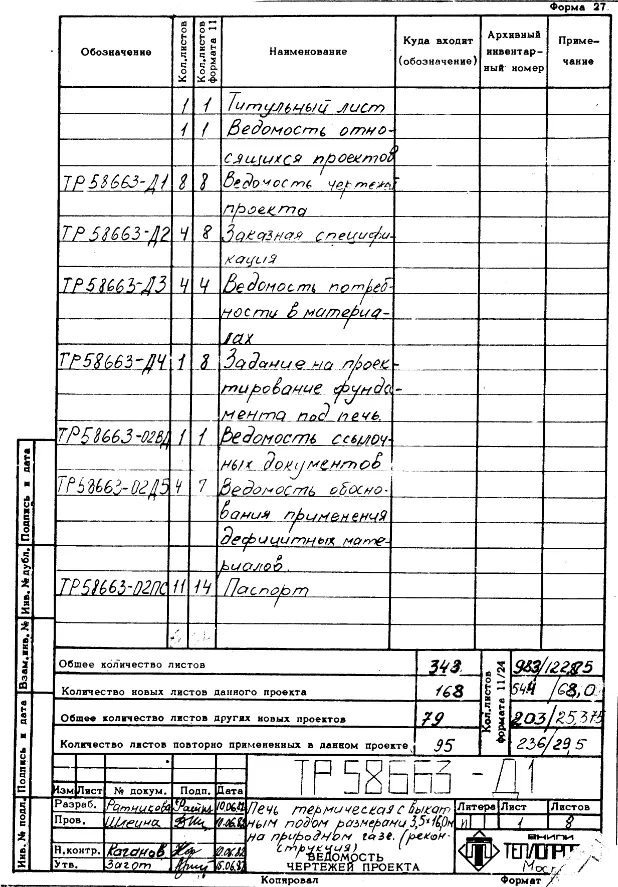 Форма 27.
Обозначение Кол.листов Кол.листов формата 11 Наименование Куда входит (обозначение) Архивный инвентарный номер Примечание
1 1 Титульный лист
1 1 Ведомость отно-
сящихся проектов
ТР58663-Д1 8 8 Ведомость чертежей
проекта
ТР58663-Д2 4 8 Заказная специфи-
кация
ТР58663-Д3 4 4 Ведомость потреб-
ности в материа-
лах
ТР58663-Д4 1 8 Задание на проек-
тирование фунда-
мента под печь.
ТР58663-02ВД 1 1 Ведомость ссылоч-
ных документов
ТР58663-02Д5 4 7 Ведомость обосно-
вания применения
дефицитных мате-
риалов.
ТР58663-02ПС 11 14 Паспорт
Общее количество листов 343 983/122,85
Количество новых листов данного проекта 168 544/68,0
Общее количество листов других новых проектов 79 203/25,375
Количество листов повторно примененных в данном проекте 95 236/29,5
Кол.листов формата 11/24
Инв.№ подл. Подпись и дата Взам.инв.№ Инв.№ дубл. Подпись и дата
ТР58663-Д1
Изм Лист № докум. Подп. Дата
Разраб. Ратникова 10.06.82
Пров. Шлеина
Н.контр. Каганов
Утв. Загот
Печь термическая с выкат-
ным подом размерами 3,5х16,0м
на природном газе. (рекон-
струкция)
ВЕДОМОСТЬ
ЧЕРТЕЖЕЙ ПРОЕКТА
Литера Лист Листов
И 1 8
ВНИПИ
ТЕПЛОПРО
Мос
Копировал Формат